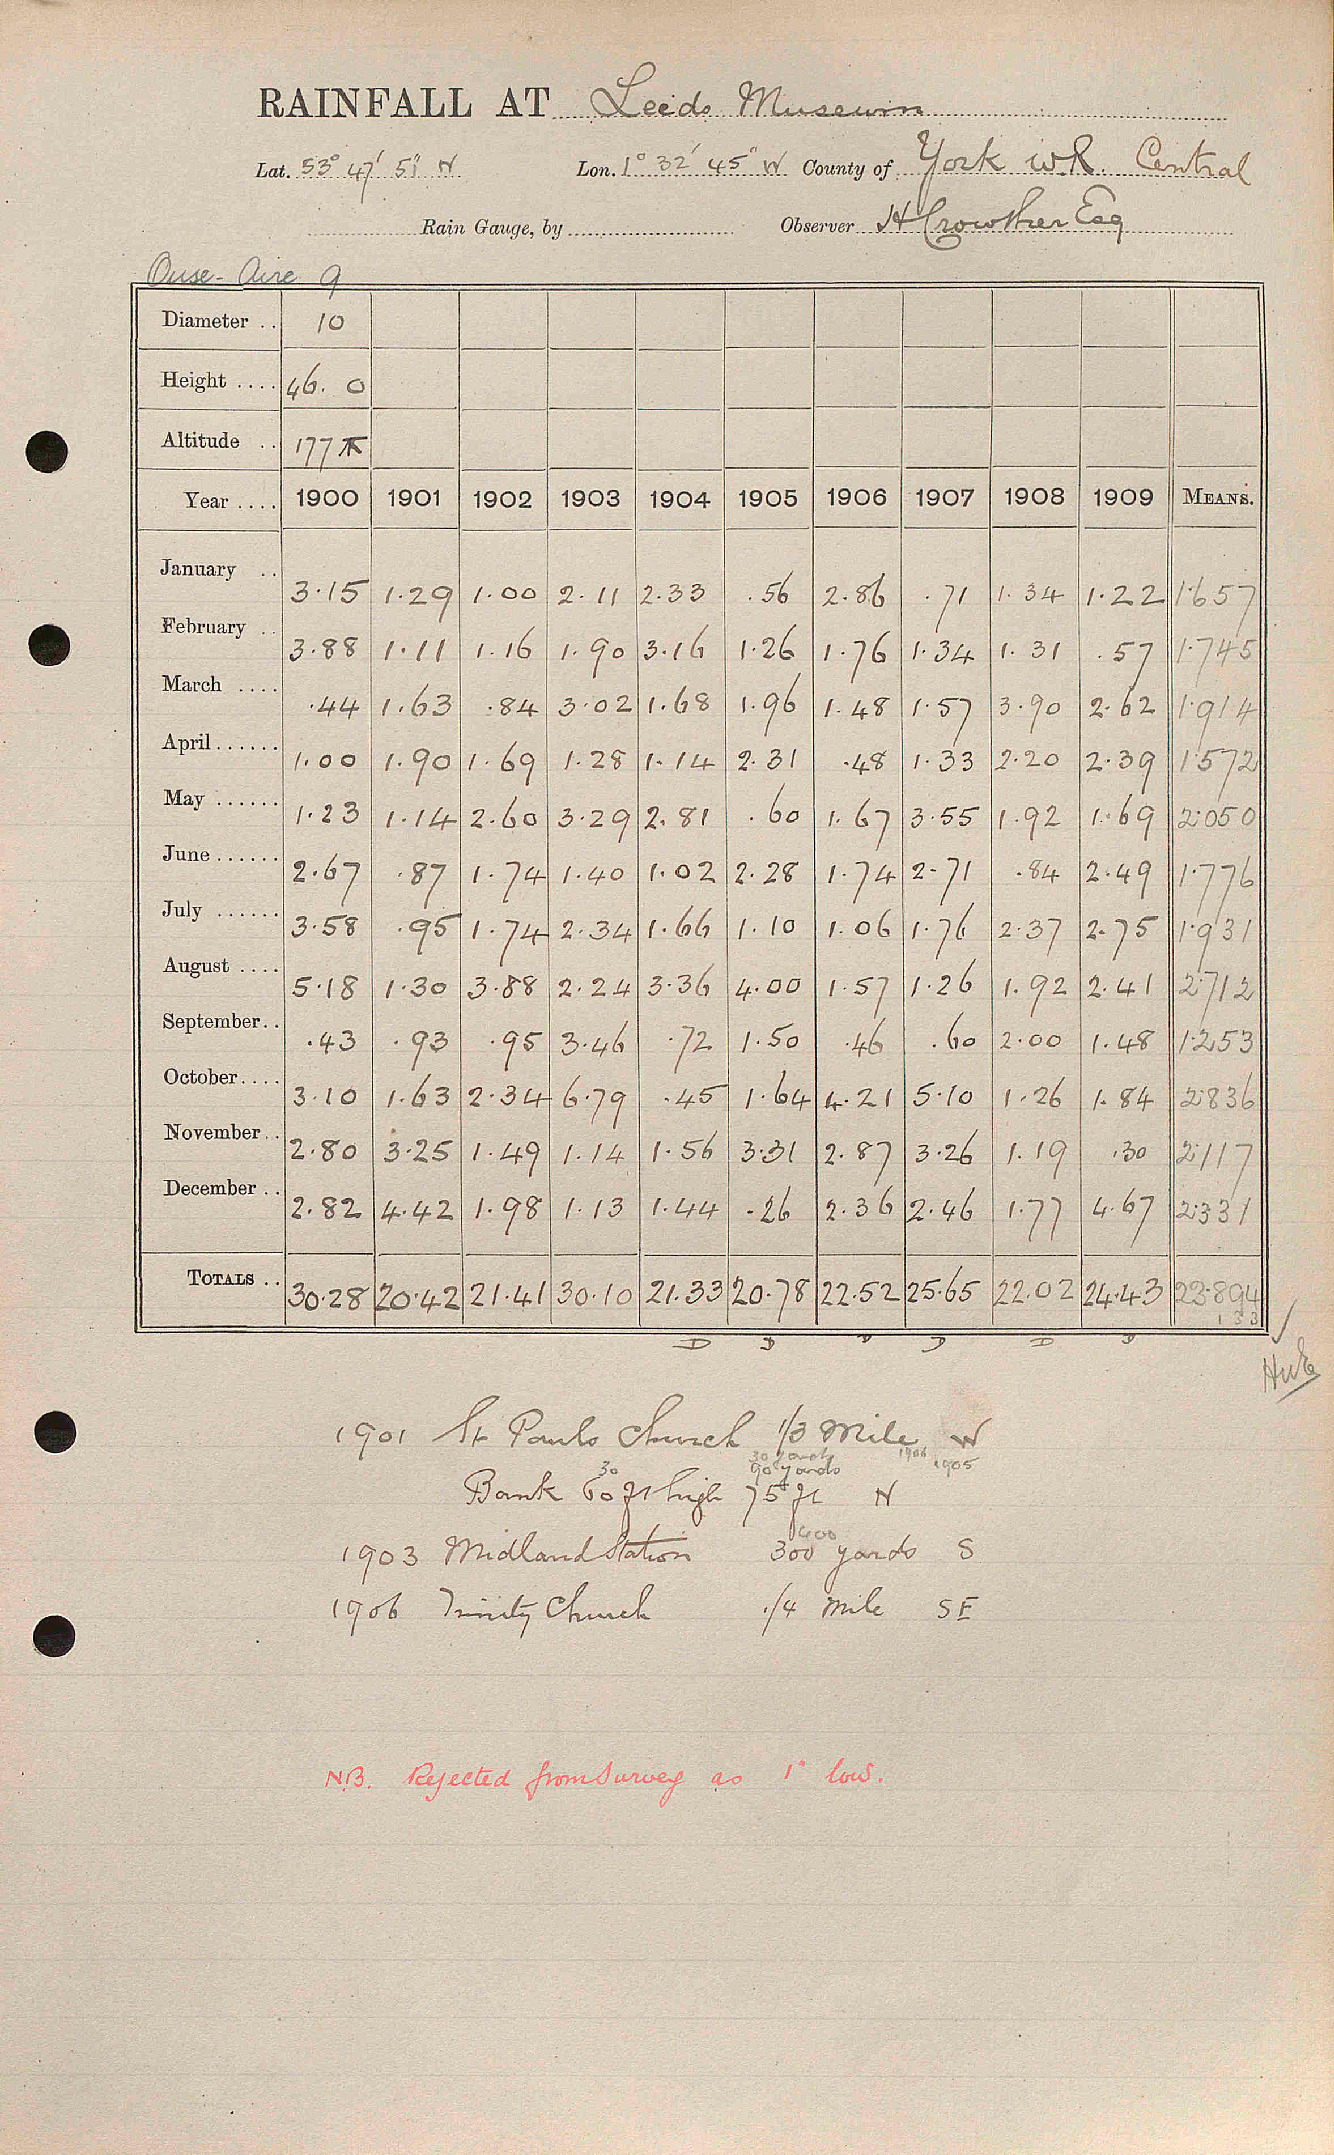 RAINFALL AT Leeds Museum
Lat. 53° 47' 51" N Lon. 1° 32' 45" W County of York W.R. Central
Rain Gauge, by Observer H Crowther Esq
Ouse - Aire 9
Diameter .. 10
Height .... 46. 0
Altitude .. 177
Year .... 1900 1901 1902 1903 1904 1905 1906 1907 1908 1909 MEANS.
January .. 3.15 1.29 1.00 2.11 2.33 .56 2.86 .71 1.34 1.22 1.657
February .. 3.88 1.11 1.16 1.90 3.16 1.26 1.76 1.34 1.31 .57 1.745
March .... .44 1.63 .84 3.02 1.68 1.96 1.48 1.57 3.90 2.62 1.914
April...... 1.00 1.90 1.69 1.28 1.14 2.31 .48 1.33 2.20 2.39 1.572
May ...... 1.23 1.14 2.60 3.29 2.81 .60 1.67 3.55 1.92 1.69 2.050
June...... 2.67 .87 1.74 1.40 1.02 2.28 1.74 2.71 .84 2.49 1.776
July ...... 3.58 .95 1.74 2.34 1.66 1.10 1.06 1.76 2.37 2.75 1.931
August .... 5.18 1.30 3.88 2.24 3.36 4.00 1.57 1.26 1.92 2.41 2.712
September.. .43 .93 .95 3.46 .72 1.50 .46 .60 2.00 1.48 1.253
October.... 3.10 1.63 2.34 6.79 .45 1.64 4.21 5.10 1.26 1.84 2.836
November.. 2.80 3.25 1.49 1.14 1.56 3.31 2.87 3.26 1.19 .30 2.117
December .. 2.82 4.42 1.98 1.13 1.44 .26 2.36 2.46 1.77 4.67 2.331
TOTALS .. 30.28 20.42 21.41 30.10 21.33 20.78 22.52 25.65 22.02 24.43 23.894
1 3 3
D D D D D D
1901 St Pauls Church 1/3 Mile W
30 yards 1906
30 90 yards 1905
Bank 60 ft high 75 ft N
400
1903 Midland Station 300 yards S
1906 Trinity Church 1/4 mile SE
N.B. Rejected from Survey as 1" low.